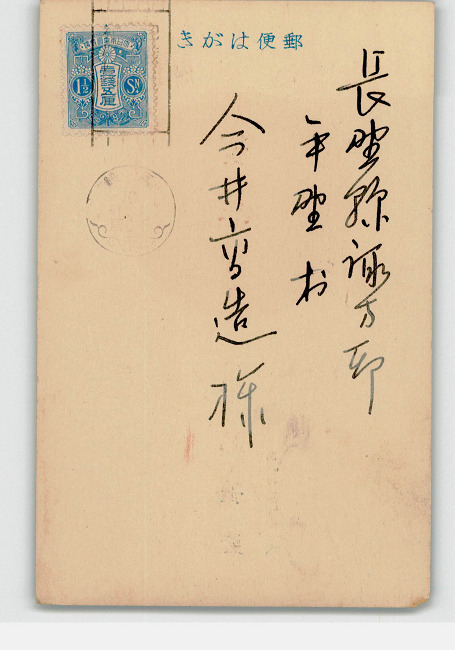 きがは便郵
長野縣諏方郡
平野村
今井高造様
壹錢五厘
1½ Sn